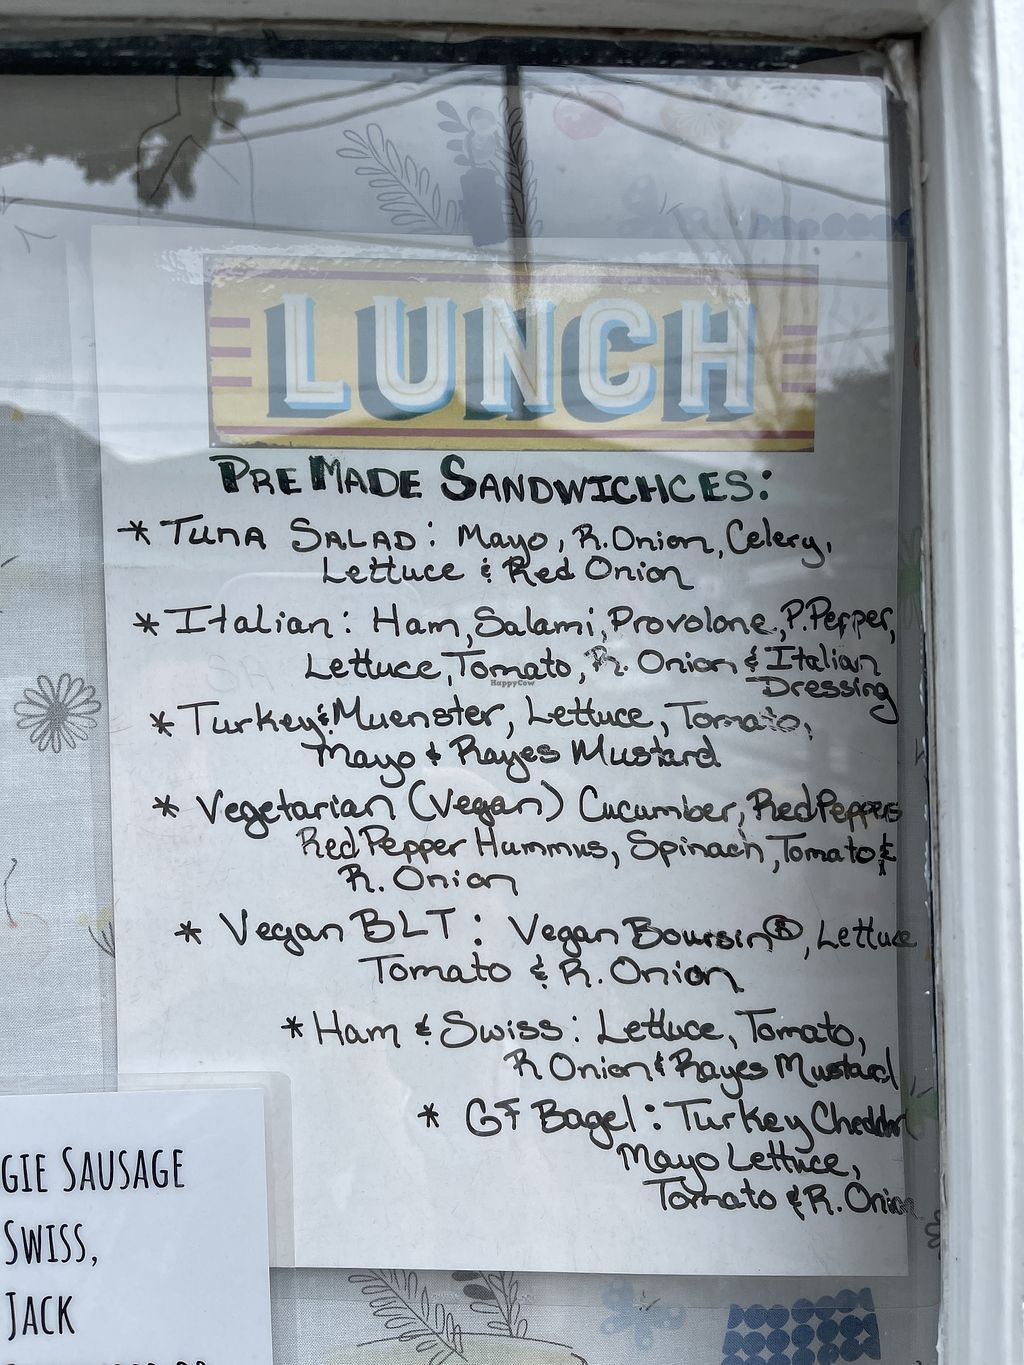 LUNCH
PRE MADE SANDWICHCES:
* TUNA SALAD: Mayo, R.Onion, Celery,
Lettuce & Red Onion
* Italian: Ham, Salami, Provolone, P.Pepper,
Lettuce, Tomato, R. Onion & Italian
Dressing
HappyCow
* Turkey & Muenster, Lettuce, Tomato,
Mayo & Rayes Mustard
* Vegetarian (Vegan) Cucumber, Red Peppers
Red Pepper Hummus, Spinach, Tomato &
R. Onion
* Vegan BLT: Vegan Boursin®, Lettuce
Tomato & R. Onion
* Ham & Swiss: Lettuce, Tomato,
R Onion & Rayes Mustard
* GF Bagel: Turkey Cheddar
Mayo Lettuce,
Tomato & R. Onion
GIE SAUSAGE
SWISS,
JACK